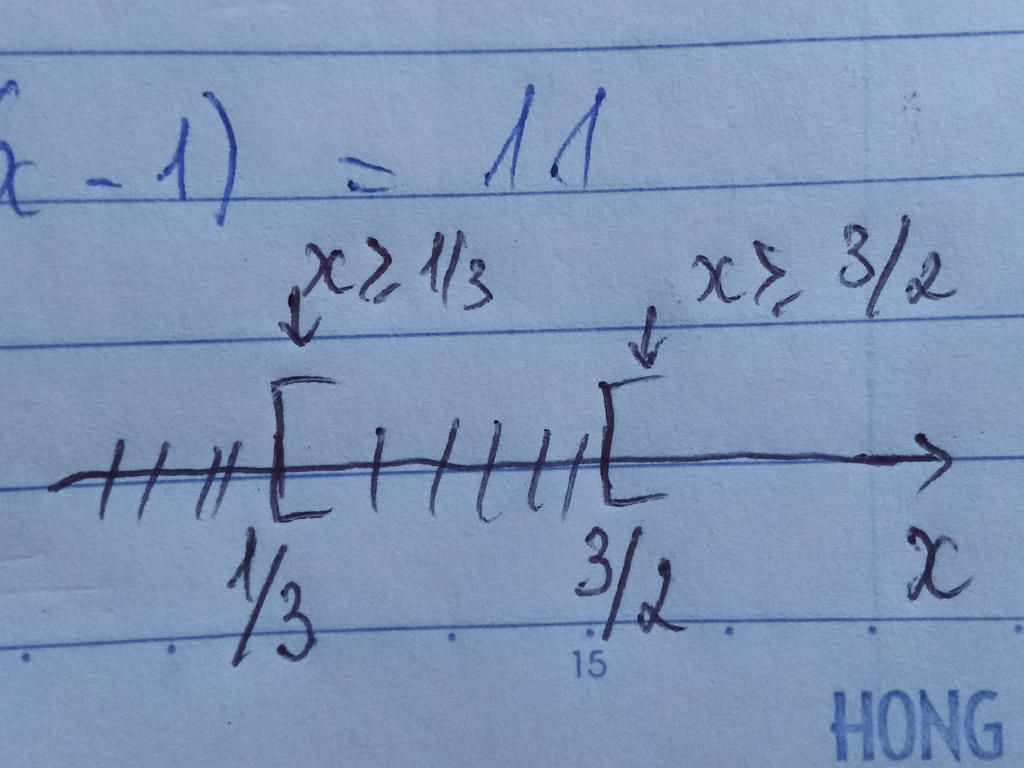 x - 1) = 11
x ≥ 1/3 x ≥ 3/2
1/3 3/2 x
15
HONG